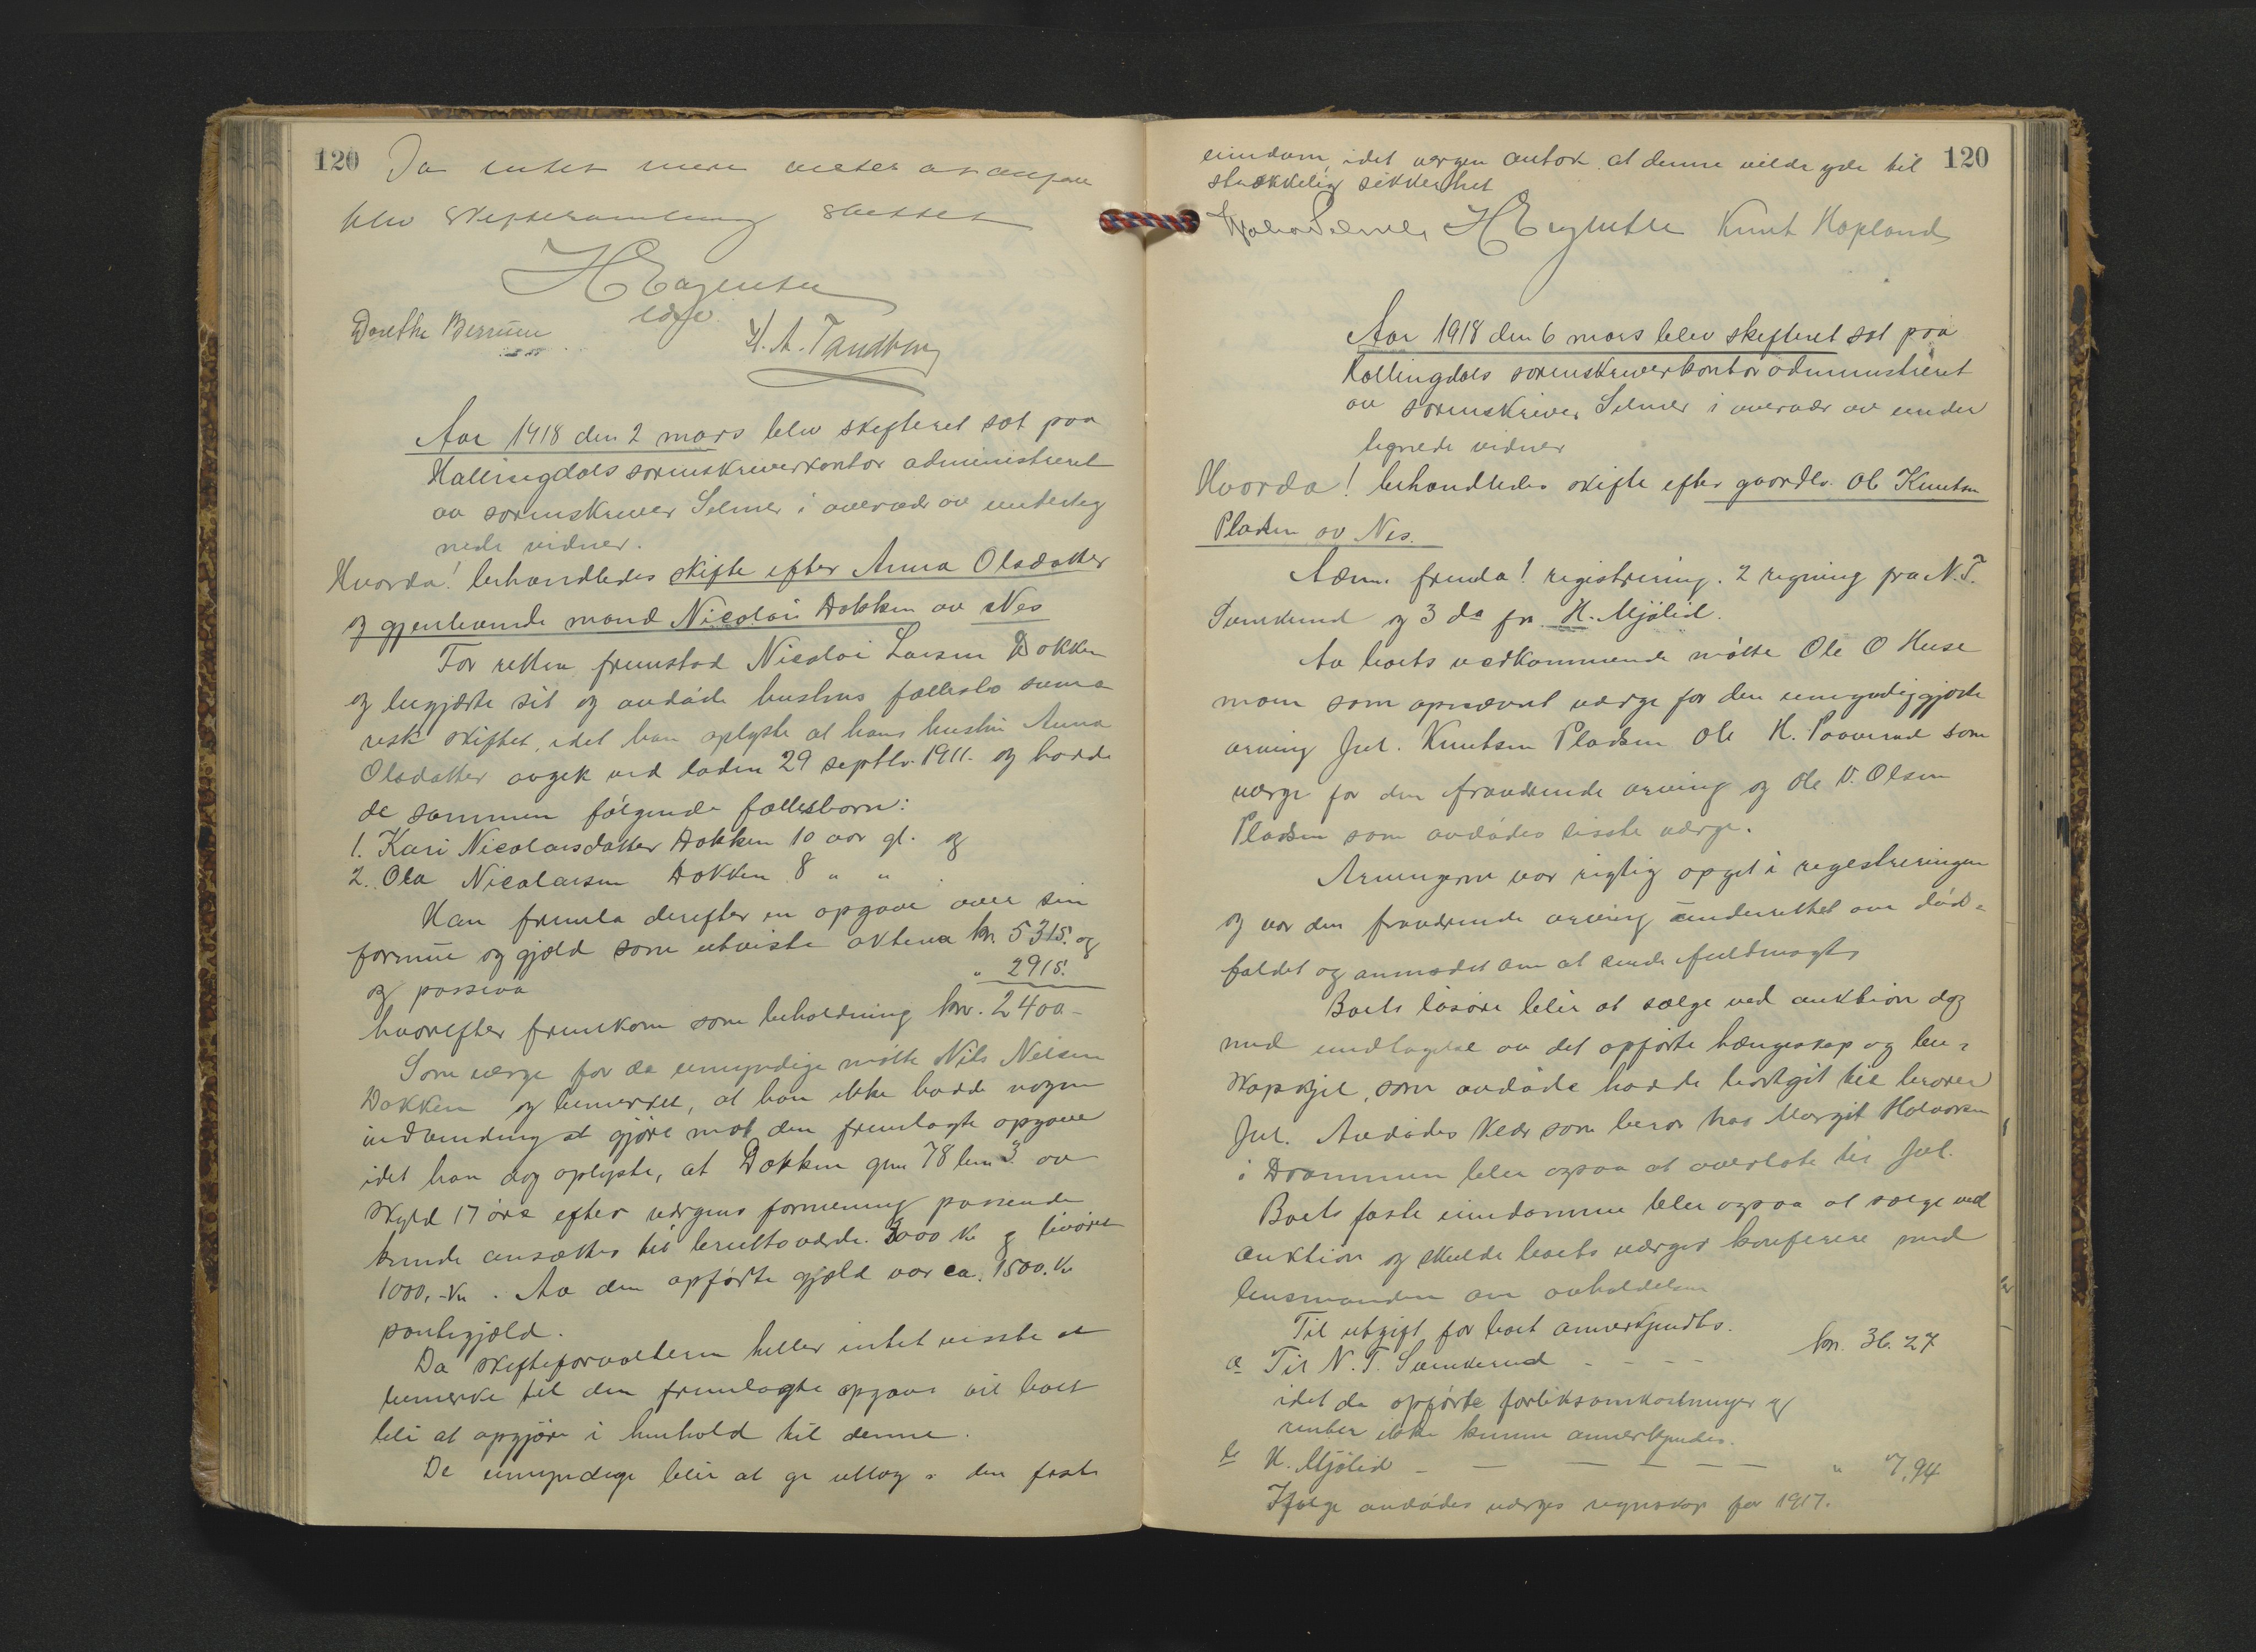 120
Da intet mere
blev Skiftesamling sluttet
HEagentu
Dorethe Berrum
H. A. Tandberg
Aar 1918 den 2 mars blev skifteret sat paa
Hallingdals sorenskriverkontor administreret
av sorenskriver Selmer i overvær av underteg
nede vidner.
Hvorda! behandledes skifte efter Anna Olsdatter
og gjenlevende mand Nicolai Dokken av Nes
For retten fremstod Nicolai Larsen Dokken
og begjærte sit og avdøde hustrus fællesbo suma
risk skiftet, idet han oplyste at hans hustru Anna
Olsdatter avgik ved døden 29 septbr. 1911. og hadde
de sammen følgende fællesbørn:
1. Kari Nicolaisdatter Dokken 10 aar gl. og
2. Ola Nicolaisen Dokken 8 " "
Han fremla derefter en opgave over sin
formue og gjæld som utviste aktiva kr. 5315. og
og passiva " 2915.
hvorefter fremkom som beholdning kr. 2400-
Som værge for de umyndige møtte Nils Nilsen
Dokken og bemerket, at han ikke hadde nogen
indvending at gjøre mot den fremlagte opgave
idet han dog oplyste, at Dokken gnr 78 bnr 3 av
skyld 17 øre efter værgens formening passende
kunde ansættes til bruttoværdi 3000 kr og livøret
1000,- kr. Av den opførte gjæld var ca. 1500. kr
pantegjæld.
Da skifteforvalteren heller intet visste at
bemerke til den fremlagte opgave vil boet
bli at opgjøre i henhold til denne.
De umyndige blir at gi utlæg i den faste
120
eiendom, idet værgen antok at denne vilde yde til
strækkelig sikkerhet
Selmer HEagentu Knut Hoplands
Aar 1918 den 6 mars blev skifteret sat paa
Hallingdals sorenskriverkontor administreret
av sorenskriver Selmer i overvær av under
tegnede vidner
Hvorda! behandledes skifte efter gaardbr. Ole Knutsen
Pladsen av Nes.
Adm. fremla! registrering. 2 regning fra N. T.
Sundrud og 3 do fra H. Mjølid.
Av boets vedkommende møtte Ole O Huse
moen som opnævnt værge for den umyndiggjorte
arving Jul. Knutsen Pladsen Ole H. som
værge for den fraværende arving og Ole V. Olsen
Pladsen som avdødes sisste værge.
Arvingerne var rigtig opgit i registreringen
og var den fraværende arving underrettet om døds-
faldet og anmodet om at sende fuldmagt
Boets løsøre blir at sælge ved auktion dog
med undtagelse av det opførte hængeskap og
som avdøde hadde bortgit til broren
Jul. Avdødes klær som beror hos Margit Halvorsen
i Drammen blir ogsaa at overlate til Jul.
Boets faste eiendomme blir ogsaa at sælge ved
auktion og skulde boets værger konferere med
lensmanden om avholdelsen
Til utgift for boet anerkjendtes.
a Til N. T. Sundrud - - - - kr. 36.27
idet de opførte forliksomkostninger og
renter ikke kunne anerkjendes.
b H. Mjølid - - - - - " 7,94
Ifølge avdødes værges regnskap for 1917.